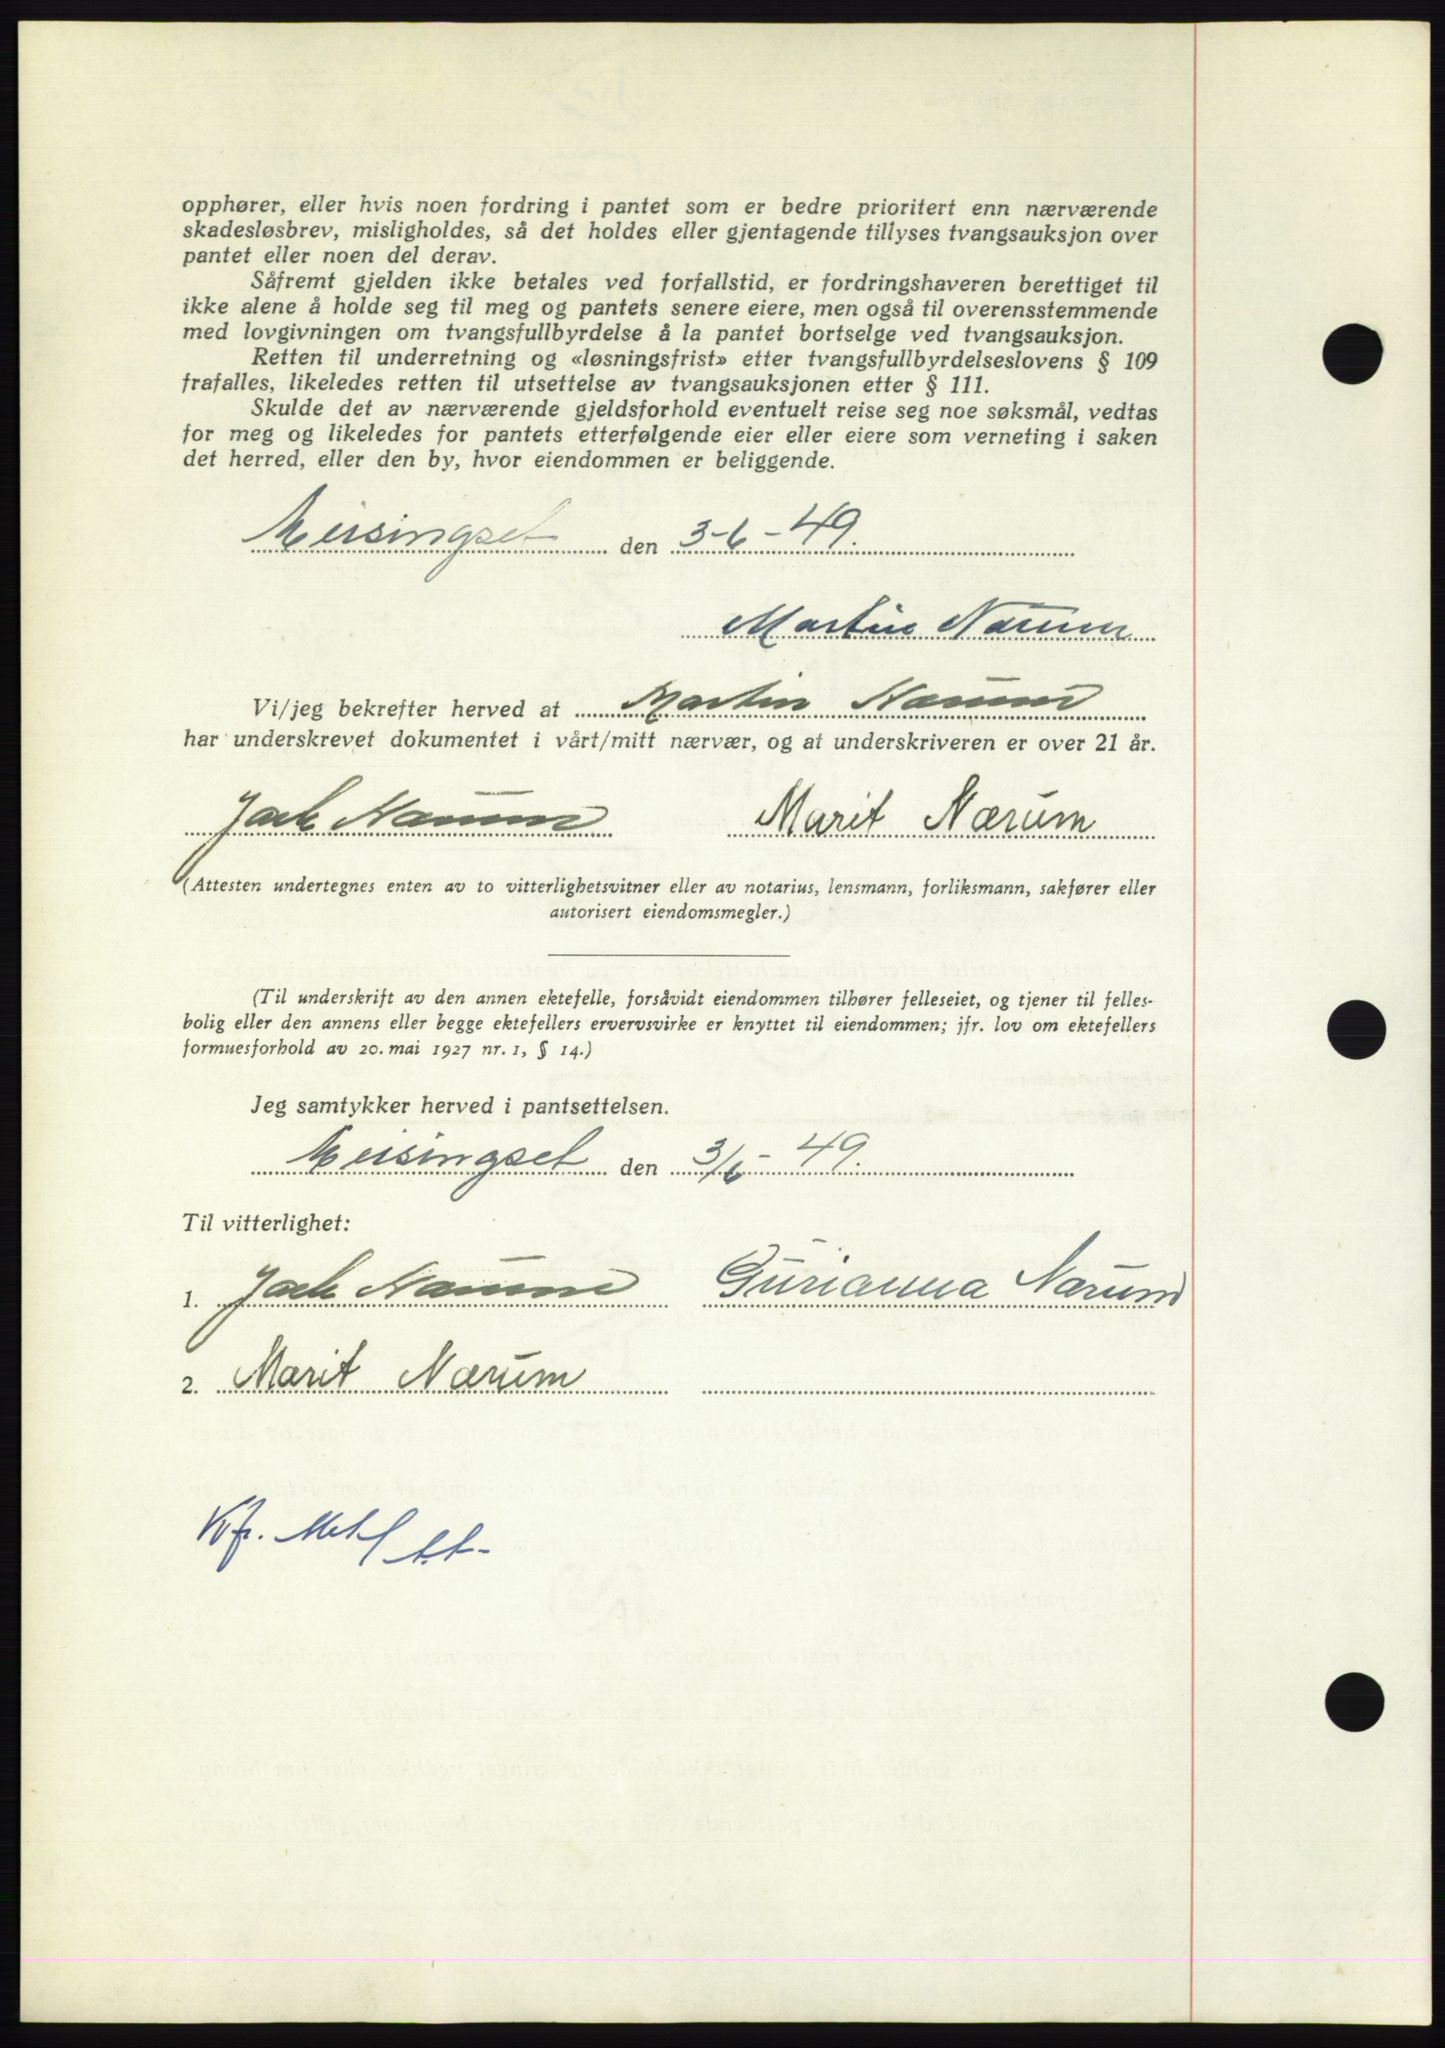 opphører, eller hvis noen fordring i pantet som er bedre prioritert enn nærværende
skadesløsbrev, misligholdes, så det holdes eller gjentagende tillyses tvangsauksjon over
pantet eller noen del derav.
Såfremt gjelden ikke betales ved forfallstid, er fordringshaveren berettiget til
ikke alene å holde seg til meg og pantets senere eiere, men også til overensstemmende
med lovgivningen om tvangsfullbyrdelse å la pantet bortselge ved tvangsauksjon.
Retten til underretning og «løsningsfrist» etter tvangsfullbyrdelseslovens § 109
frafalles, likeledes retten til utsettelse av tvangsauksjonen etter § 111.
Skulde det av nærværende gjeldsforhold eventuelt reise seg noe søksmål, vedtas
for meg og likeledes for pantets etterfølgende eier eller eiere som verneting i saken
det herred, eller den by, hvor eiendommen er beliggende.
Meisingset den 3-6-49.
Martin Nærum
Vi/jeg bekrefter herved at Martin Nærum
har underskrevet dokumentet i vårt/mitt nærvær, og at underskriveren er over 21 år.
Nærum Marit Nærum
(Attesten undertegnes enten av to vitterlighetsvitner eller av notarius, lensmann, forliksmann, sakfører eller
autorisert eiendomsmegler.)
(Til underskrift av den annen ektefelle, forsåvidt eiendommen tilhører felleseiet, og tjener til felles-
bolig eller den annens eller begge ektefellers ervervsvirke er knyttet til eiendommen; jfr. lov om ektefellers
formuesforhold av 20. mai 1927 nr. 1, § 14.)
Jeg samtykker herved i pantsettelsen.
Meisingset den 3/6-49.
Til vitterlighet:
1. Nærum Gurianna Nærum
2. Marit Nærum